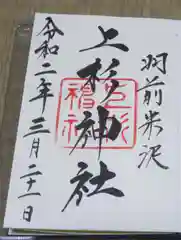 羽前米沢
上杉神社
令和二年三月二十一日